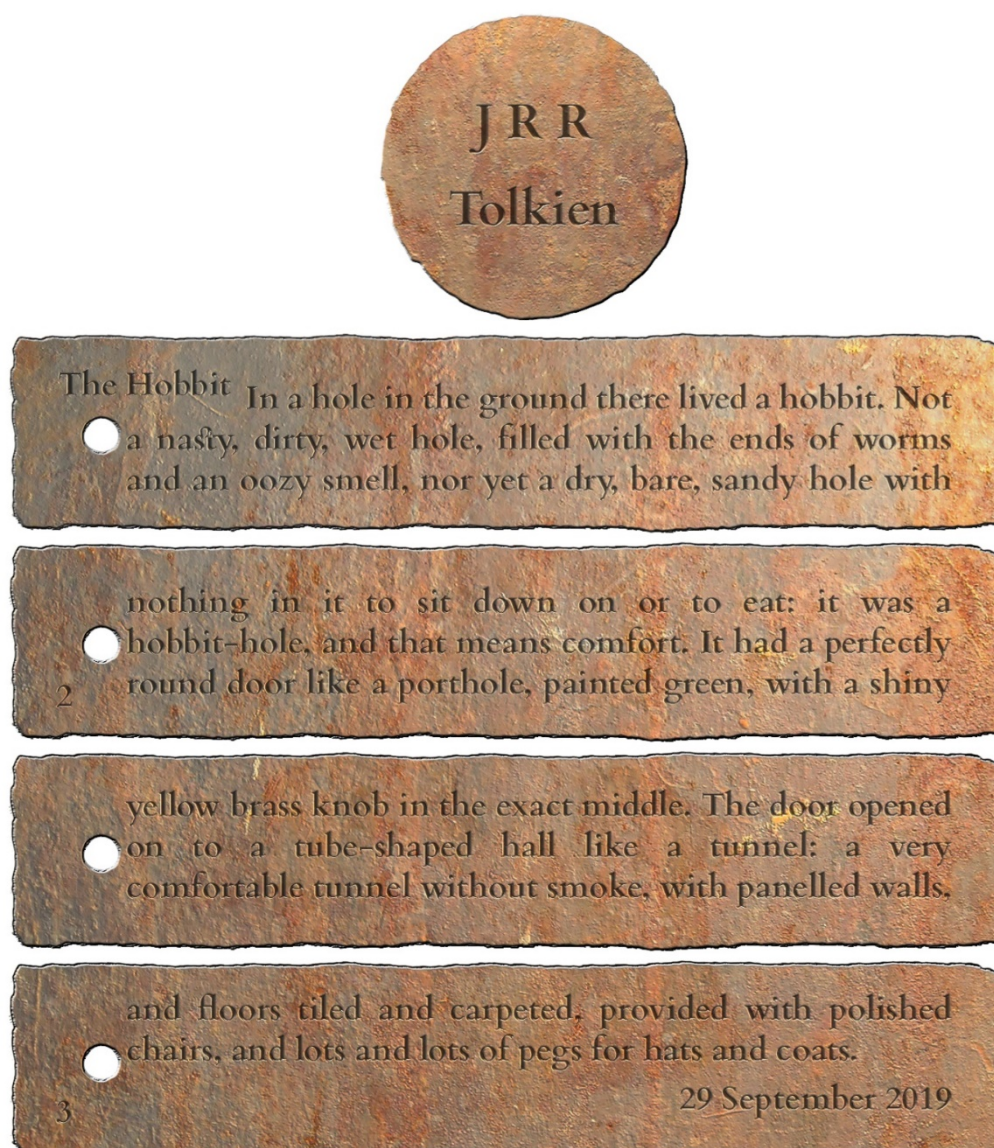 J R R
Tolkien
The Hobbit In a hole in the ground there lived a hobbit. Not
a nasty, dirty, wet hole, filled with the ends of worms
and an oozy smell, nor yet a dry, bare, sandy hole with
nothing in it to sit down on or to eat: it was a
hobbit-hole, and that means comfort. It had a perfectly
2 round door like a porthole, painted green, with a shiny
yellow brass knob in the exact middle. The door opened
on to a tube-shaped hall like a tunnel: a very
comfortable tunnel without smoke, with panelled walls,
and floors tiled and carpeted, provided with polished
chairs, and lots and lots of pegs for hats and coats.
3 29 September 2019